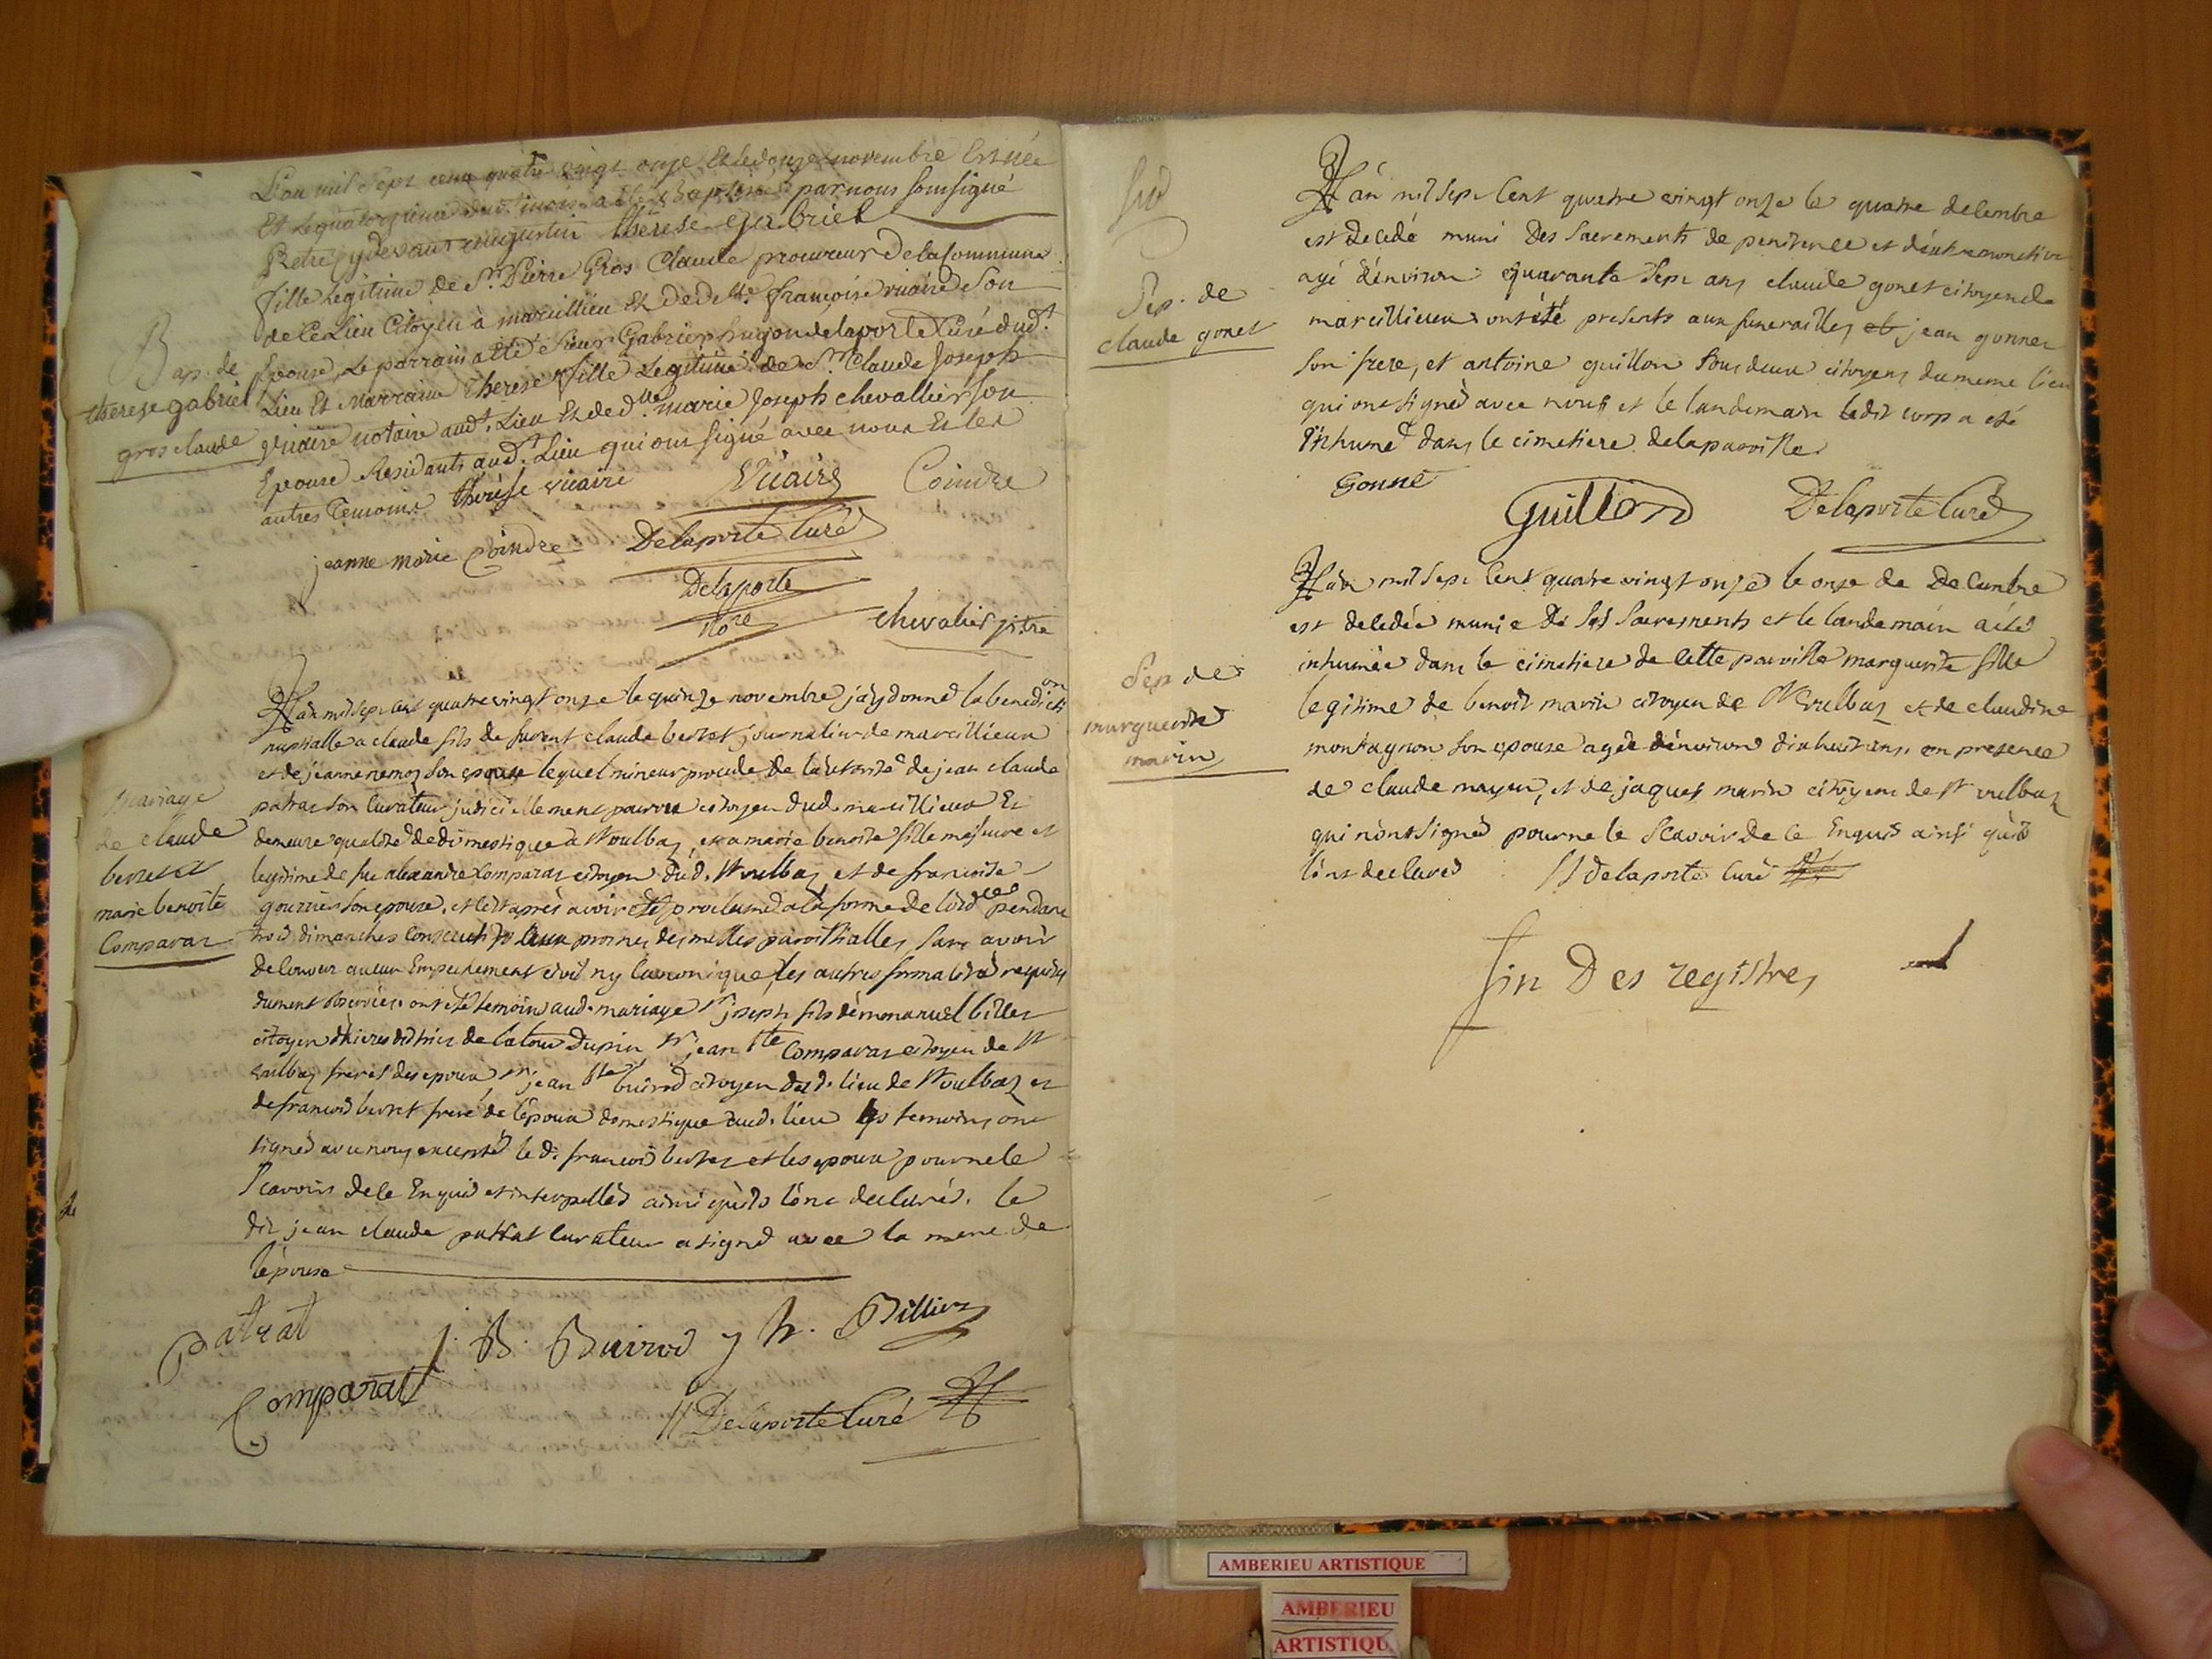 L'an mil Sept cent quatre vingt onze Et le douze novembre Est née
Et le quatorzieme dud.t mois a été Baptisée par nous Soussigné
Pretre cydevant augustin therese gabriel
fille Legitime de S.r Pierre Gros Claude procureur de la Commune
de ce Lieu Citoyen à marcillieu Et de d.elle françoise vicaire Son
Epouse, Le parrain a été Sieur Gabriel hugon delaporte Curé dud.t
Lieu Et Marraine therese fille Legitime de S.r Claude Joseph
Vicaire notaire aud.t Lieu Et de d.lle marie Joseph chevallier Son
Epouse Residants aud.t Lieu qui ont signé avec nous Et les
autres Temoins
Bap. de
therese gabriel
gros claude
therese vicaire
Vicaire
Coindre
jeanne marie Coindre
Delaporte Curé
Delaporte
No.re
chevalier p.tre
L'an mil sept cent quatre vingt onze le quinze novembre j'ay donné la benediction
nuptialle a claude fils de furent claude berret journalier de marcillieux
et de jeanne remoz son epouse lequel mineur procede de l'autorité de jean claude
patrat son curateur judiciellement pourvu citoyen dud. marcillieux Et
demeure qualité de domestique a St vulbaz, et a marie benoite fille majeure et
legitime de feu alexandre comparat citoyen dud. St vulbaz et de francoise
son epouse, et c'est après avoir eté proclamé a la forme de l'ord.ces pendant
trois dimanches consecutifs aux prones des messes paroissialles, sans avoir
decouvert aucun Empechement civil ny canonique, les autres formalités requises
dument observées. ont été temoins aud. mariage S.r joseph fils d'emmanuel billier
citoyen d'hieres district de la tour Dupin S.r jean B.te Comparat citoyen de St
vulbaz frere de l'epoux S.r jean B.te buirod citoyen dud. lieu de St vulbaz et
de francois berret frere de l'epoux domestique aud. lieu les temoins ont
signé avec nous excepté le d. francois berret et les epoux pour ne le
scavoir de ce Enquis et interpellés ainsi qu'ils l'ont declarés. le
dit jean claude patrat curateur a signé avec la mere de
l'epouse
mariage
de claude
berret et
marie benoite
Comparat
Patrat
J. B. Buirod
J h. Billier
Comparat
H Delaporte Curé
Sep. de
claude gonet
L'an mil sept cent quatre vingt onze le quatre decembre
est decedé muni des sacrements de penitence et d'extremonction
agé d'environ quarante sept ans claude gonet citoyen de
marcillieux ont été presents aux funerailles jean gonnet
son frere, et antoine guillon tous deux citoyens du meme lieu
qui ont signé avec nous et le landemain ledit corp a eté
inhumé dans le cimetiere de la paroisse
Gonne
Guillon
Delaporte Curé
L'an mil sept cent quatre vingt onze le onze de decembre
est decedée munie de ses sacrements et le landemain a été
inhumée dans le cimetiere de cette paroisse marguerite fille
legitime de benoit marin citoyen de St vulbaz et de claudine
montagnon son epouse agée d'environ dix huit ans. en presence
de claude mayeu, et de jaques marin citoyens de St vulbaz
qui n'ont signé pour ne le scavoir de ce Enquis ainsi qu'ils
l'ont declaré
H delaporte curé
Sep. de
marguerite
marin
fin Des registres
AMBERIEU ARTISTIQUE
AMBERIEU
ARTISTIQU